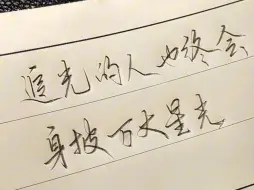 追光的人也终会
身披万丈星光